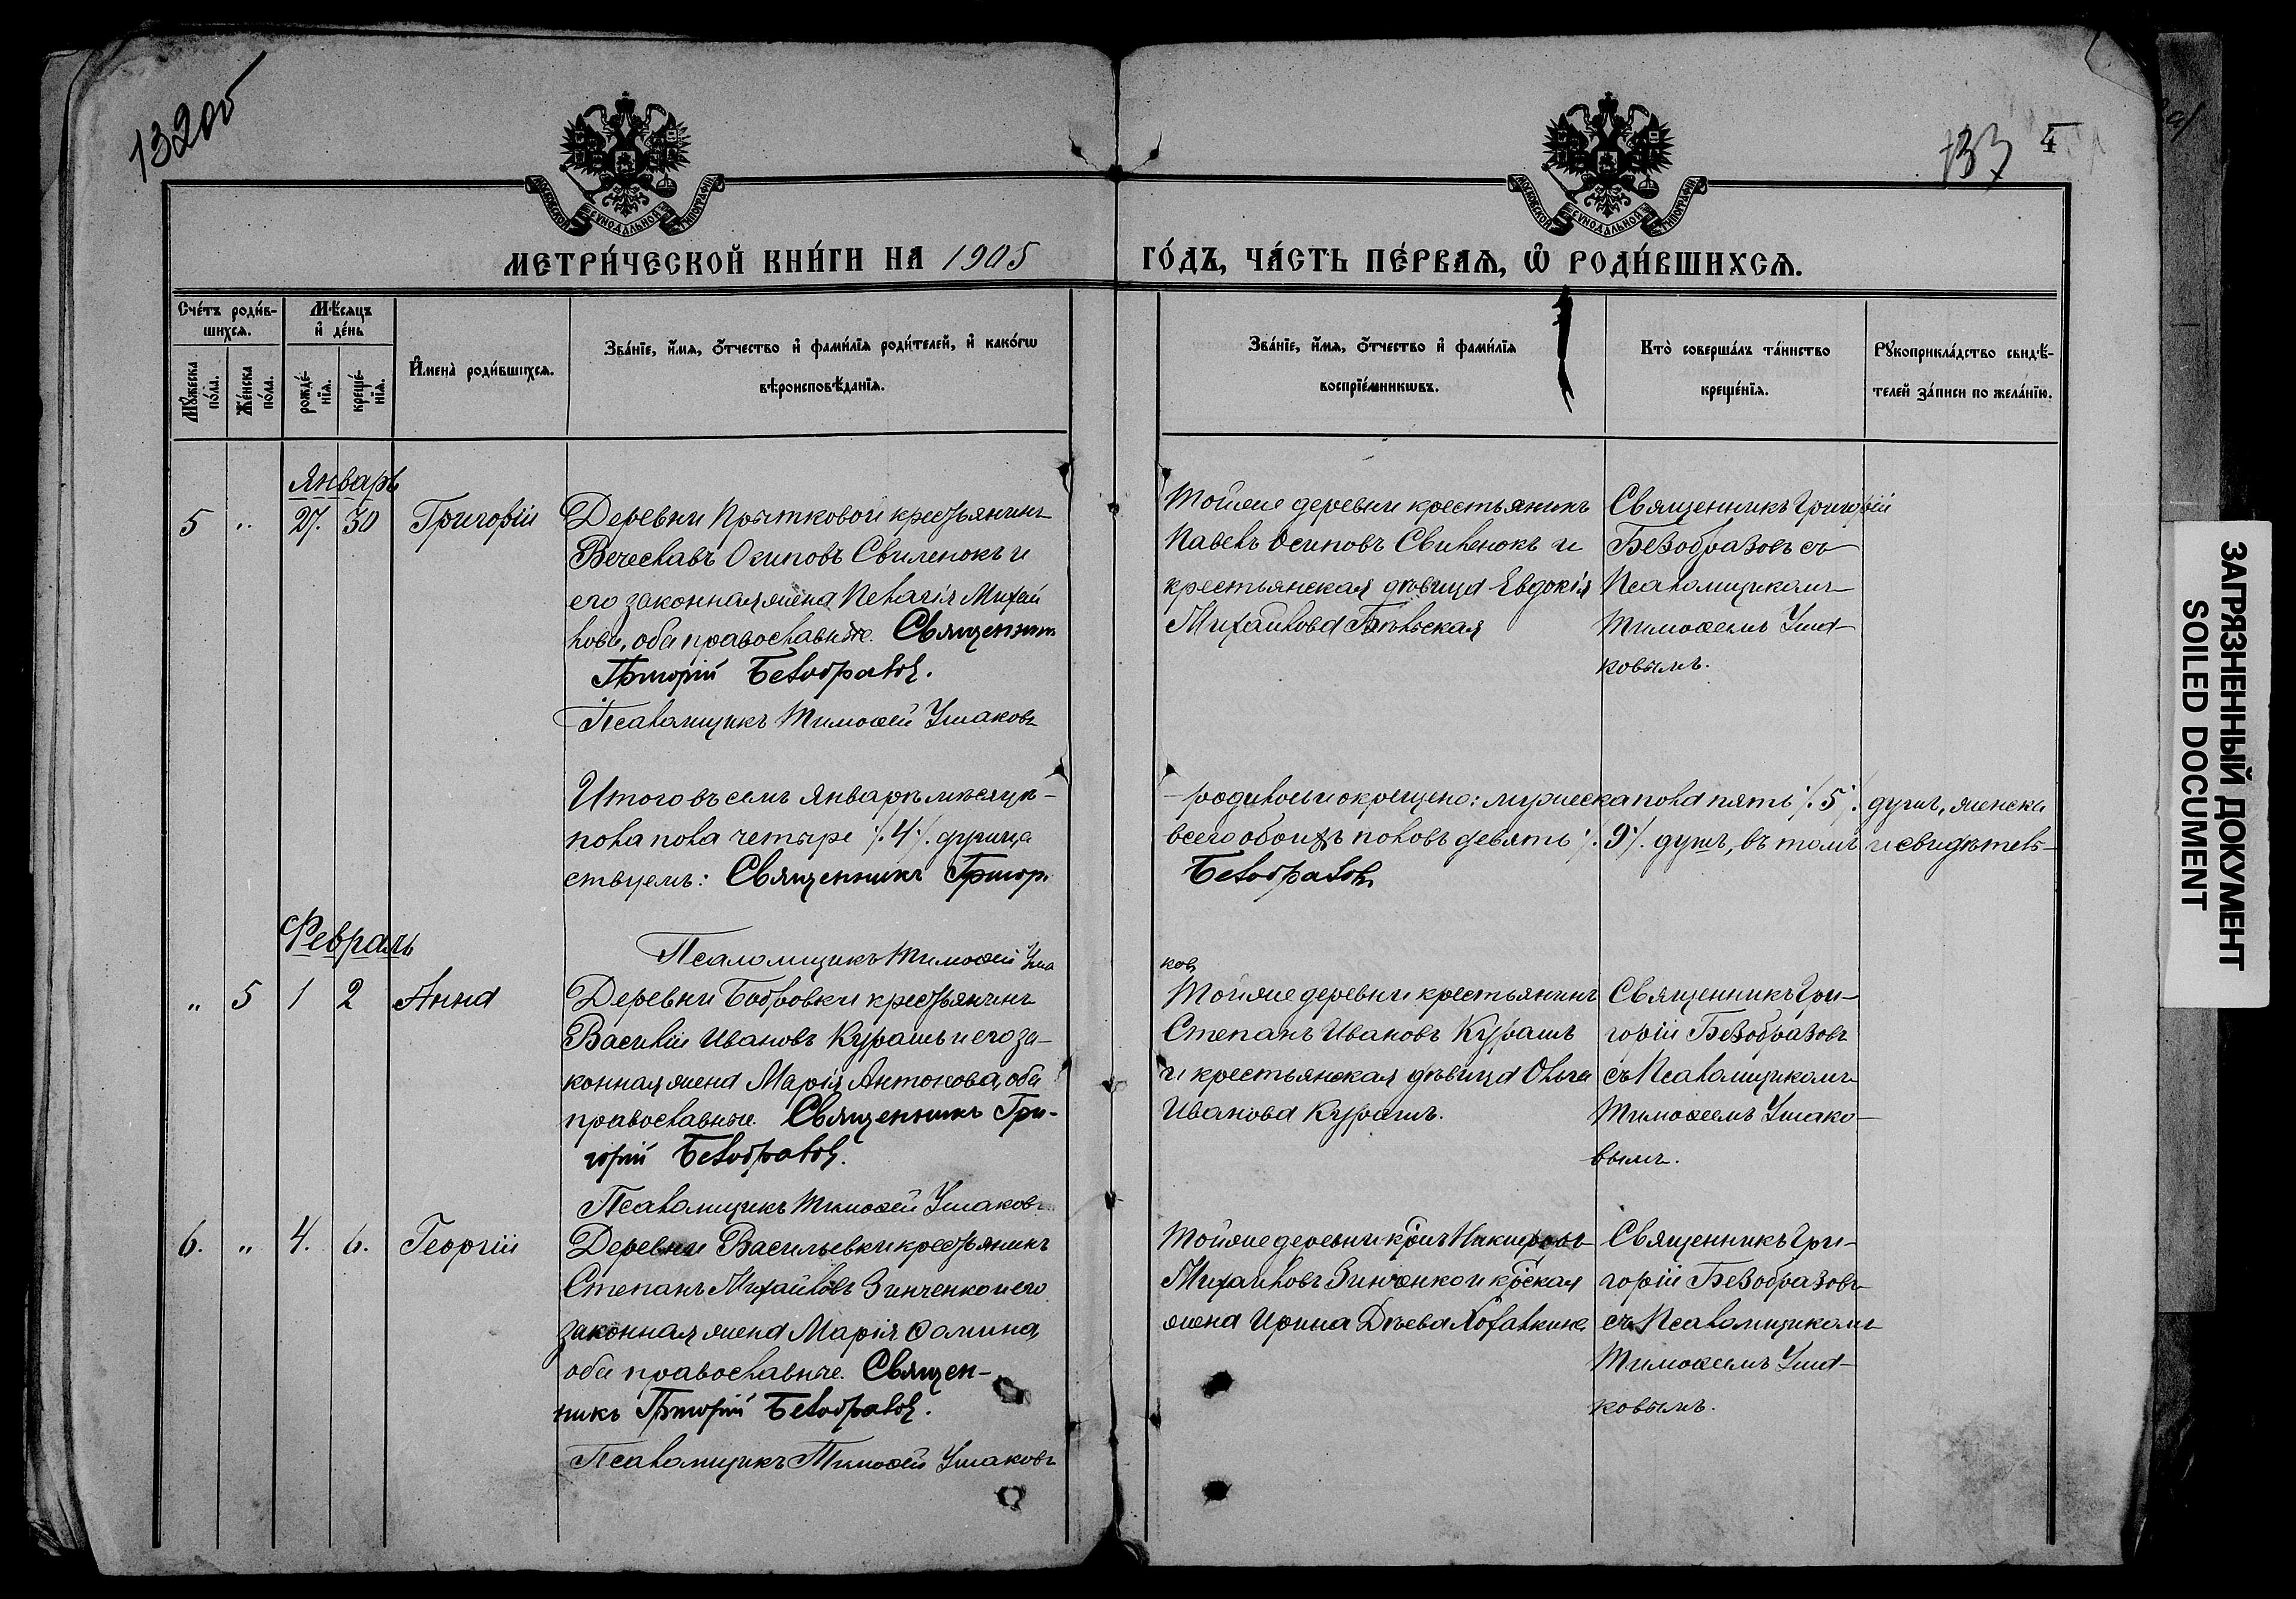 132об
133 4
МОСКОВСКОЙ СѴНОДАЛЬНОЙ ТИПОГРАФІИ
МОСКОВСКОЙ СѴНОДАЛЬНОЙ ТИПОГРАФІИ
МЕТРИ́ЧЕСКОЙ КНИ́ГИ НА 1905
ГО́ДЪ, ЧА́СТЬ ПЕ́РВАѦ, Ѽ РОДИ́ВШИХСѦ.
Сче́тъ роди́в-
шихсѧ.
Мѣ́сѧцъ
и҆ де́нь
Мꙋ́жеска
по́ла.
Же́нска
по́ла.
рожде́-
нїѧ.
креще́-
нїѧ.
И҆мена̀ роди́вшихсѧ.
Зва́нїе, и҆́мѧ, ѻ҆́тчество и҆ фами́лїѧ роди́телей, и҆ како́гѡ
вѣроисповѣ́данїѧ.
Зва́нїе, и҆́мѧ, ѻ҆́тчество и҆ фами́лїѧ
воспрїе́мникѡвъ.
Кто̀ соверша́лъ та́инство
креще́нїѧ.
Рꙋкоприкла́дство свидѣ́-
телей за́писи по жела́нїю.
Январь
5 " 27. 30 Григорій
Деревни Прытковой крестьянинъ
Вечеславъ Осиповъ Свиленокъ и
его законная жена Пелагія Михай
лова, оба православные. Священникъ
Григорій Безобразовъ.
Псаломщикъ Тимоѳей Ушаковъ
Тойже деревни крестьянинъ
Павелъ Осиповъ Свиленокъ и
крестьянская дѣвица Евдокія
Михайлова
Священникъ Григорій
Безобразовъ съ
Псаломщикомъ
Тимоѳеемъ Уша-
ковымъ.
Итого въ семъ Январѣ мѣсяцѣ -
- родилось и окрещено: мужеска пола пять /.5./ душъ, женска
пола пола четыре /.4./ душица
всего обоихъ половъ девять /.9./ душъ, въ томъ и свидѣтель-
ствуемъ: Священникъ Григор.
Безобразовъ
Псаломщикъ Тимоѳей Уша
ковъ
Февраль
" 5 1 2 Анна
Деревни Бобровки крестьянинъ
Василій Ивановъ Курашъ и его за-
конная жена Марія Антонова, оба
православные. Священникъ Гри-
горій Безобразовъ.
Псаломщикъ Тимоѳей Ушаковъ
Тойже деревни крестьянинъ
Степанъ Ивановъ Курашъ
и крестьянская дѣвица Ольга
Иванова Курашъ.
Священникъ Гри-
горій Безобразовъ
съ Псаломщикомъ
Тимоѳеемъ Ушако-
вымъ.
6. " 4. 6. Георгій
Деревни Васильевки крестьянинъ
Степанъ Михайловъ Зинченко и его
законная жена Марія Ѳомина
оба православные. Священ-
никъ Григорій Безобразовъ.
Псаломщикъ Тимоѳей Ушаковъ
Тойже деревни кр-нъ Никифоръ
Михайловъ Зинченко и кр-ская
жена Ирина
Священникъ Гри-
горій Безобразовъ
съ Псаломщикомъ
Тимоѳеемъ Уша-
ковымъ.
ЗАГРЯЗНЕННЫЙ ДОКУМЕНТ
SOILED DOCUMENT